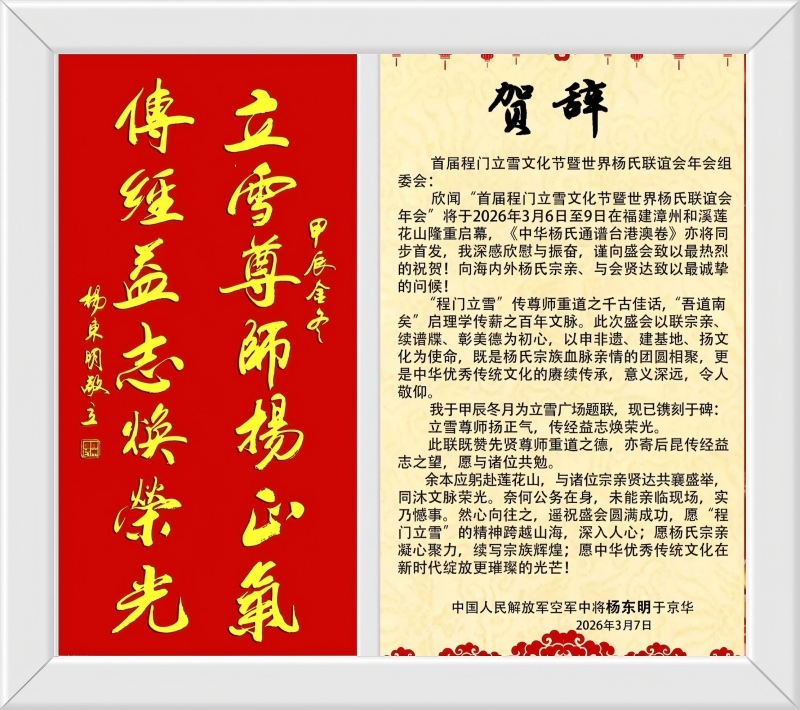 立雪尊師揚正氣
甲辰金冬
傳經益志煥榮光
楊東明敬立
贺辞
首届程门立雪文化节暨世界杨氏联谊会年会组
委会：
欣闻“首届程门立雪文化节暨世界杨氏联谊会
年会”将于2026年3月6日至9日在福建漳州和溪莲
花山隆重启幕，《中华杨氏通谱台港澳卷》亦将同
步首发，我深感欣慰与振奋，谨向盛会致以最热烈
的祝贺！向海内外杨氏宗亲、与会贤达致以最诚挚
的问候！
“程门立雪”传尊师重道之千古佳话，“吾道南
矣”启理学传薪之百年文脉。此次盛会以联宗亲、
续谱牒、彰美德为初心，以申非遗、建基地、扬文
化为使命，既是杨氏宗族血脉亲情的团圆相聚，更
是中华优秀传统文化的赓续传承，意义深远，令人
敬仰。
我于甲辰冬月为立雪广场题联，现已镌刻于碑：
立雪尊师扬正气，传经益志焕荣光。
此联既赞先贤尊师重道之德，亦寄后昆传经益
志之望，愿与诸位共勉。
余本应躬赴莲花山，与诸位宗亲贤达共襄盛举，
同沐文脉荣光。奈何公务在身，未能亲临现场，实
乃憾事。然心向往之，遥祝盛会圆满成功，愿“程
门立雪”的精神跨越山海，深入人心；愿杨氏宗亲
凝心聚力，续写宗族辉煌；愿中华优秀传统文化在
新时代绽放更璀璨的光芒！
中国人民解放军空军中将杨东明于京华
2026年3月7日